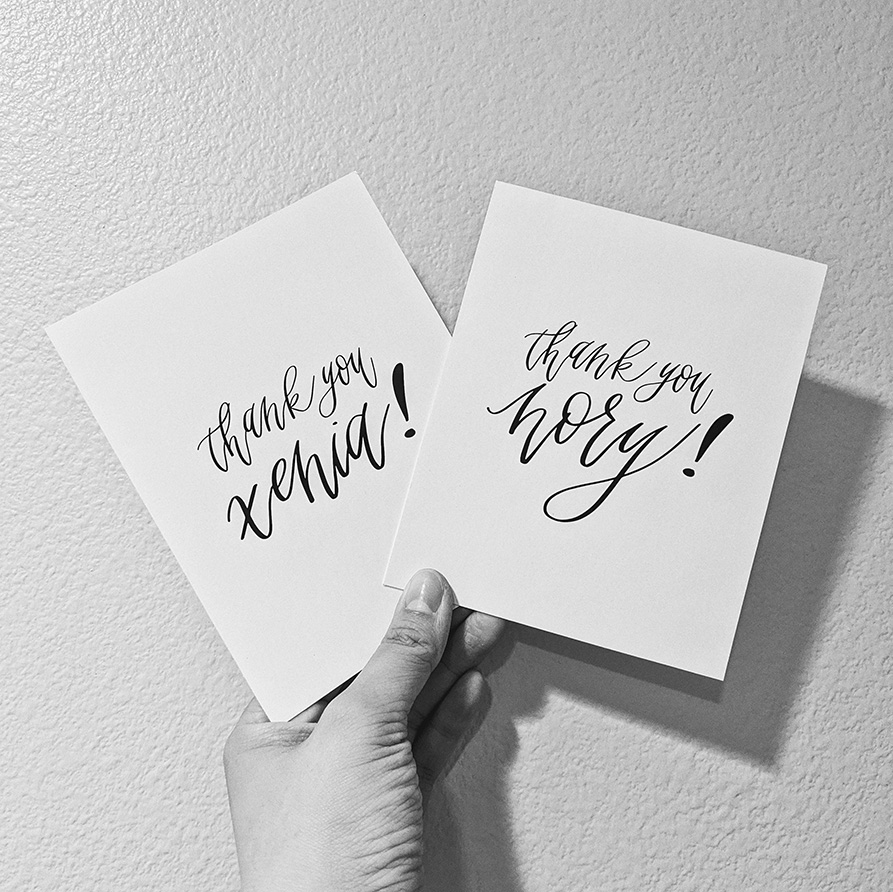 thank you
xenia!
thank you
hory!